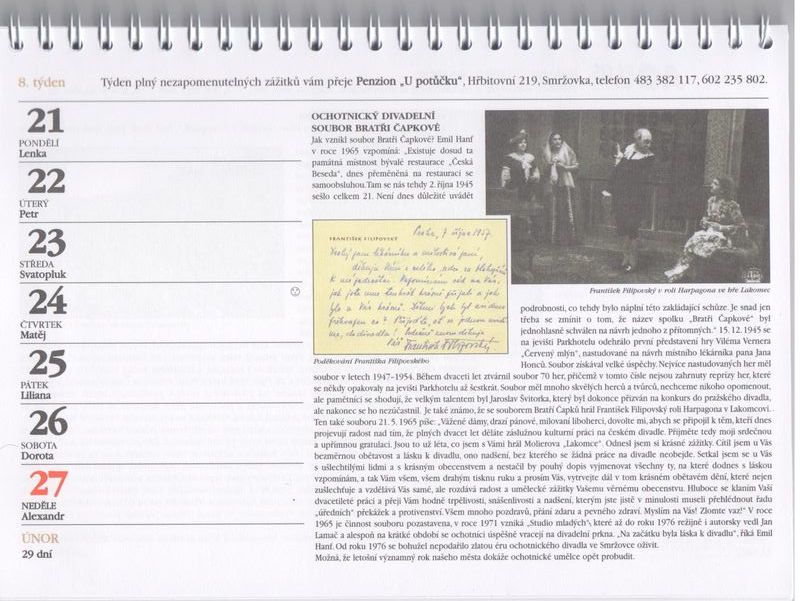 8. týden
Týden plný nezapomenutelných zážitků vám přeje Penzion „U potůčku“, Hřbitovní 219, Smržovka, telefon 483 382 117, 602 235 802.
21
PONDĚLÍ
Lenka
22
ÚTERÝ
Petr
23
STŘEDA
Svatopluk
24
ČTVRTEK
Matěj
25
PÁTEK
Liliana
26
SOBOTA
Dorota
27
NEDĚLE
Alexandr
ÚNOR
29 dní
OCHOTNICKÝ DIVADELNÍ
SOUBOR BRATŘI ČAPKOVÉ
Jak vznikl soubor Bratři Čapkové? Emil Hanf
v roce 1965 vzpomíná: „Existuje dosud ta
památná místnost bývalé restaurace „Česká
Beseda“, dnes přeměněná na restauraci se
samoobsluhou. Tam se nás tehdy 2. října 1945
sešlo celkem 21. Není dnes důležité uvádět
František Filipovský v roli Harpagona ve hře Lakomec
FRANTIŠEK FILIPOVSKÝ
Praha, 7. října 1957
Poděkování Františka Filipovského
podrobnosti, co tehdy bylo náplní této zakládající schůze. Je snad jen
třeba se zmínit o tom, že název spolku „Bratři Čapkové“ byl
jednohlasně schválen na návrh jednoho z přítomných.“ 15. 12. 1945 se
na jevišti Parkhotelu odehrálo první představení hry Viléma Vernera
„Červený mlýn“, nastudované na návrh místního lékárníka pana Jana
Honců. Soubor získával velké úspěchy. Nejvíce nastudovaných her měl
soubor v letech 1947–1954. Během dvaceti let ztvárnil soubor 70 her, přičemž v tomto čísle nejsou zahrnuty reprízy her, které
se někdy opakovaly na jevišti Parkhotelu až šestkrát. Soubor měl mnoho skvělých herců a tvůrců, nechceme nikoho opomenout,
ale pamětníci se shodují, že velkým talentem byl Jaroslav Švitorka, který byl dokonce přizván na konkurs do pražského divadla,
ale nakonec se ho nezúčastnil. Je také známo, že se souborem Bratři Čapků hrál František Filipovský roli Harpagona v Lakomcovi.
Ten také souboru 21. 5. 1965 píše: „Vážené dámy, drazí pánové, milovaní liboherci, dovolte mi, abych se připojil k těm, kteří dnes
projevují radost nad tím, že plných dvacet let děláte záslužnou kulturní práci na českém divadle. Přijměte tedy moji srdečnou
a upřímnou gratulaci. Jsou to už léta, co jsem s Vámi hrál Molierova „Lakomce“. Odnesl jsem si krásné zážitky. Cítil jsem u Vás
bezměrnou obětavost a lásku k divadlu, ono nadšení, bez kterého se žádná práce na divadle neobejde. Setkal jsem se u Vás
s ušlechtilými lidmi a s krásným obecenstvem a nestačil by pouhý dopis vyjmenovat všechny ty, na které dodnes s láskou
vzpomínám, a tak Vám všem, všem drahým tisknu ruku a prosím Vás, vytrvejte dál v tom krásném obětavém dění, které nejen
zušlechťuje a vzdělává Vás samé, ale rozdává radost a umělecké zážitky Vašemu věrnému obecenstvu. Hluboce se klaním Vaší
dvacetileté práci a přeji Vám hodně trpělivosti, snášenlivosti a nadšení, kterým jste jistě v minulosti museli přehlédnout řadu
„úředních“ překážek a protivenství. Všem mnoho pozdravů, přání zdaru a pevného zdraví. Myslím na Vás! Zlomte vaz!“ V roce
1965 je činnost souboru pozastavena, v roce 1971 vzniká „Studio mladých“, které až do roku 1976 režijně i autorsky vedl Jan
Lamač a alespoň na krátké období se ochotníci úspěšně vracejí na divadelní prkna. „Na začátku byla láska k divadlu“, říká Emil
Hanf. Od roku 1976 se bohužel nepodařilo zlatou éru ochotnického divadla ve Smržovce oživit.
Možná, že letošní významný rok našeho města dokáže ochotnické umělce opět probudit.